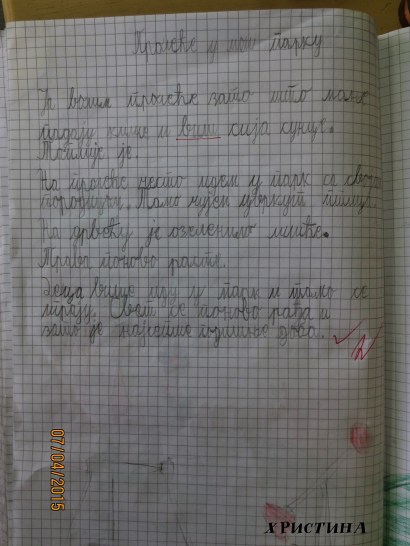 Пролеће у мом парку
Ја волим пролеће зато што мање
падају кише и више сија сунце.
Топлије је.
На пролеће често идем у парк са својом
породицом. Тамо чујем цвркут птица.
На дрвећу је озеленило лишће.
Трава поново расте.
Деца више иду у парк и тамо се
играју. Свет се поново рађа и
зато је најлепше годишње доба.
07/04/2015
ХРИСТИНА